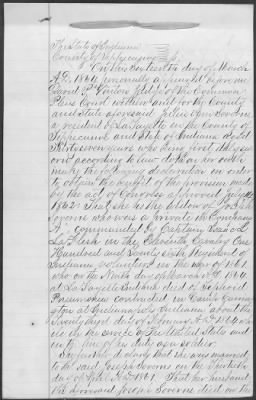 The State of Indiana
County of Tippecanoe ss.
On this day of March
A.D. 1864 personally appeared before me
David P. Clerk of the Common
Pleas Court within and for the County
and State aforesaid Julia Ann
a resident of La Fayette in the County of
Tippecanoe and State of Indiana aged
Thirty seven years who being first duly
sworn according to law doth on her oath
make the following declaration in order
to obtain the benefit of the provision made
by the act of Congress approved July 14
1862: That she is the widow of Joseph
who was a private in Company
A commanded by Captain
in the Eleventh Cavalry One
Hundred and Twenty sixth Regiment of
Indiana Volunteers in the war of 1861
who on the Ninth day of March A.D. 1864
at La Fayette Indiana died of Typhoid
Pneumonia contracted in Camp
at Indianapolis Indiana about the
Twenty third day of A.D. 1864 while
in the service of the United States and
in the line of his duty as a soldier.
She further declares that she was married
to the said Joseph on the
day of 1847. That her husband
the aforesaid Joseph died on the